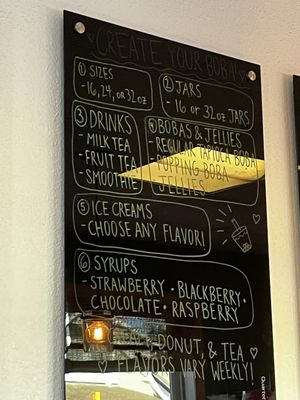 CREATE YOUR BOBA!
① SIZES
-16, 24, OR 32 OZ
② JARS
- 16 OR 32 OZ JARS
③ DRINKS
- MILK TEA
- FRUIT TEA
- SMOOTHIE
④ BOBAS & JELLIES
- REGULAR TAPIOCA BOBA
- POPPING BOBA
- JELLIES
⑤ ICE CREAMS
- CHOOSE ANY FLAVOR!
⑥ SYRUPS
- STRAWBERRY • BLACKBERRY •
CHOCOLATE • RASPBERRY
& DONUT, & TEA
FLAVORS VARY WEEKLY!